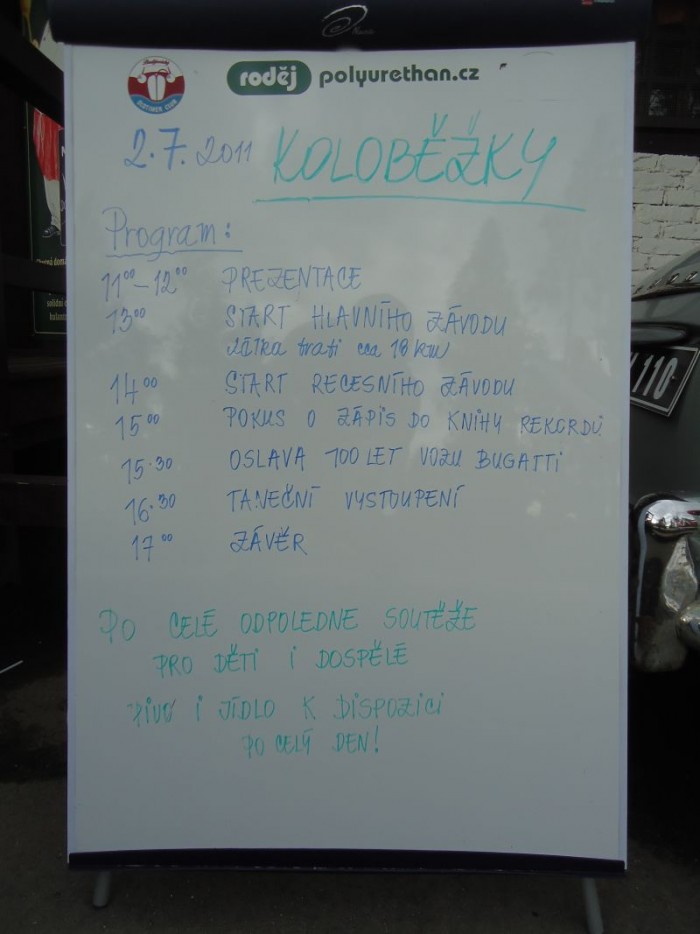 roděj polyurethan.cz
2.7.2011 KOLOBĚŽKY
Program:
11⁰⁰-12⁰⁰ PREZENTACE
13⁰⁰ START HLAVNÍHO ZÁVODU
délka trati cca 18 km
14⁰⁰ START RECESNÍHO ZÁVODU
15⁰⁰ POKUS O ZÁPIS DO KNIHY REKORDŮ
15.30 OSLAVA 100 LET VOZU BUGATTI
16.30 TANEČNÍ VYSTOUPENÍ
17⁰⁰ ZÁVĚR
PO CELÉ ODPOLEDNE SOUTĚŽE
PRO DĚTI I DOSPĚLÉ
PIVO I JÍDLO K DISPOZICI
PO CELÝ DEN!
110